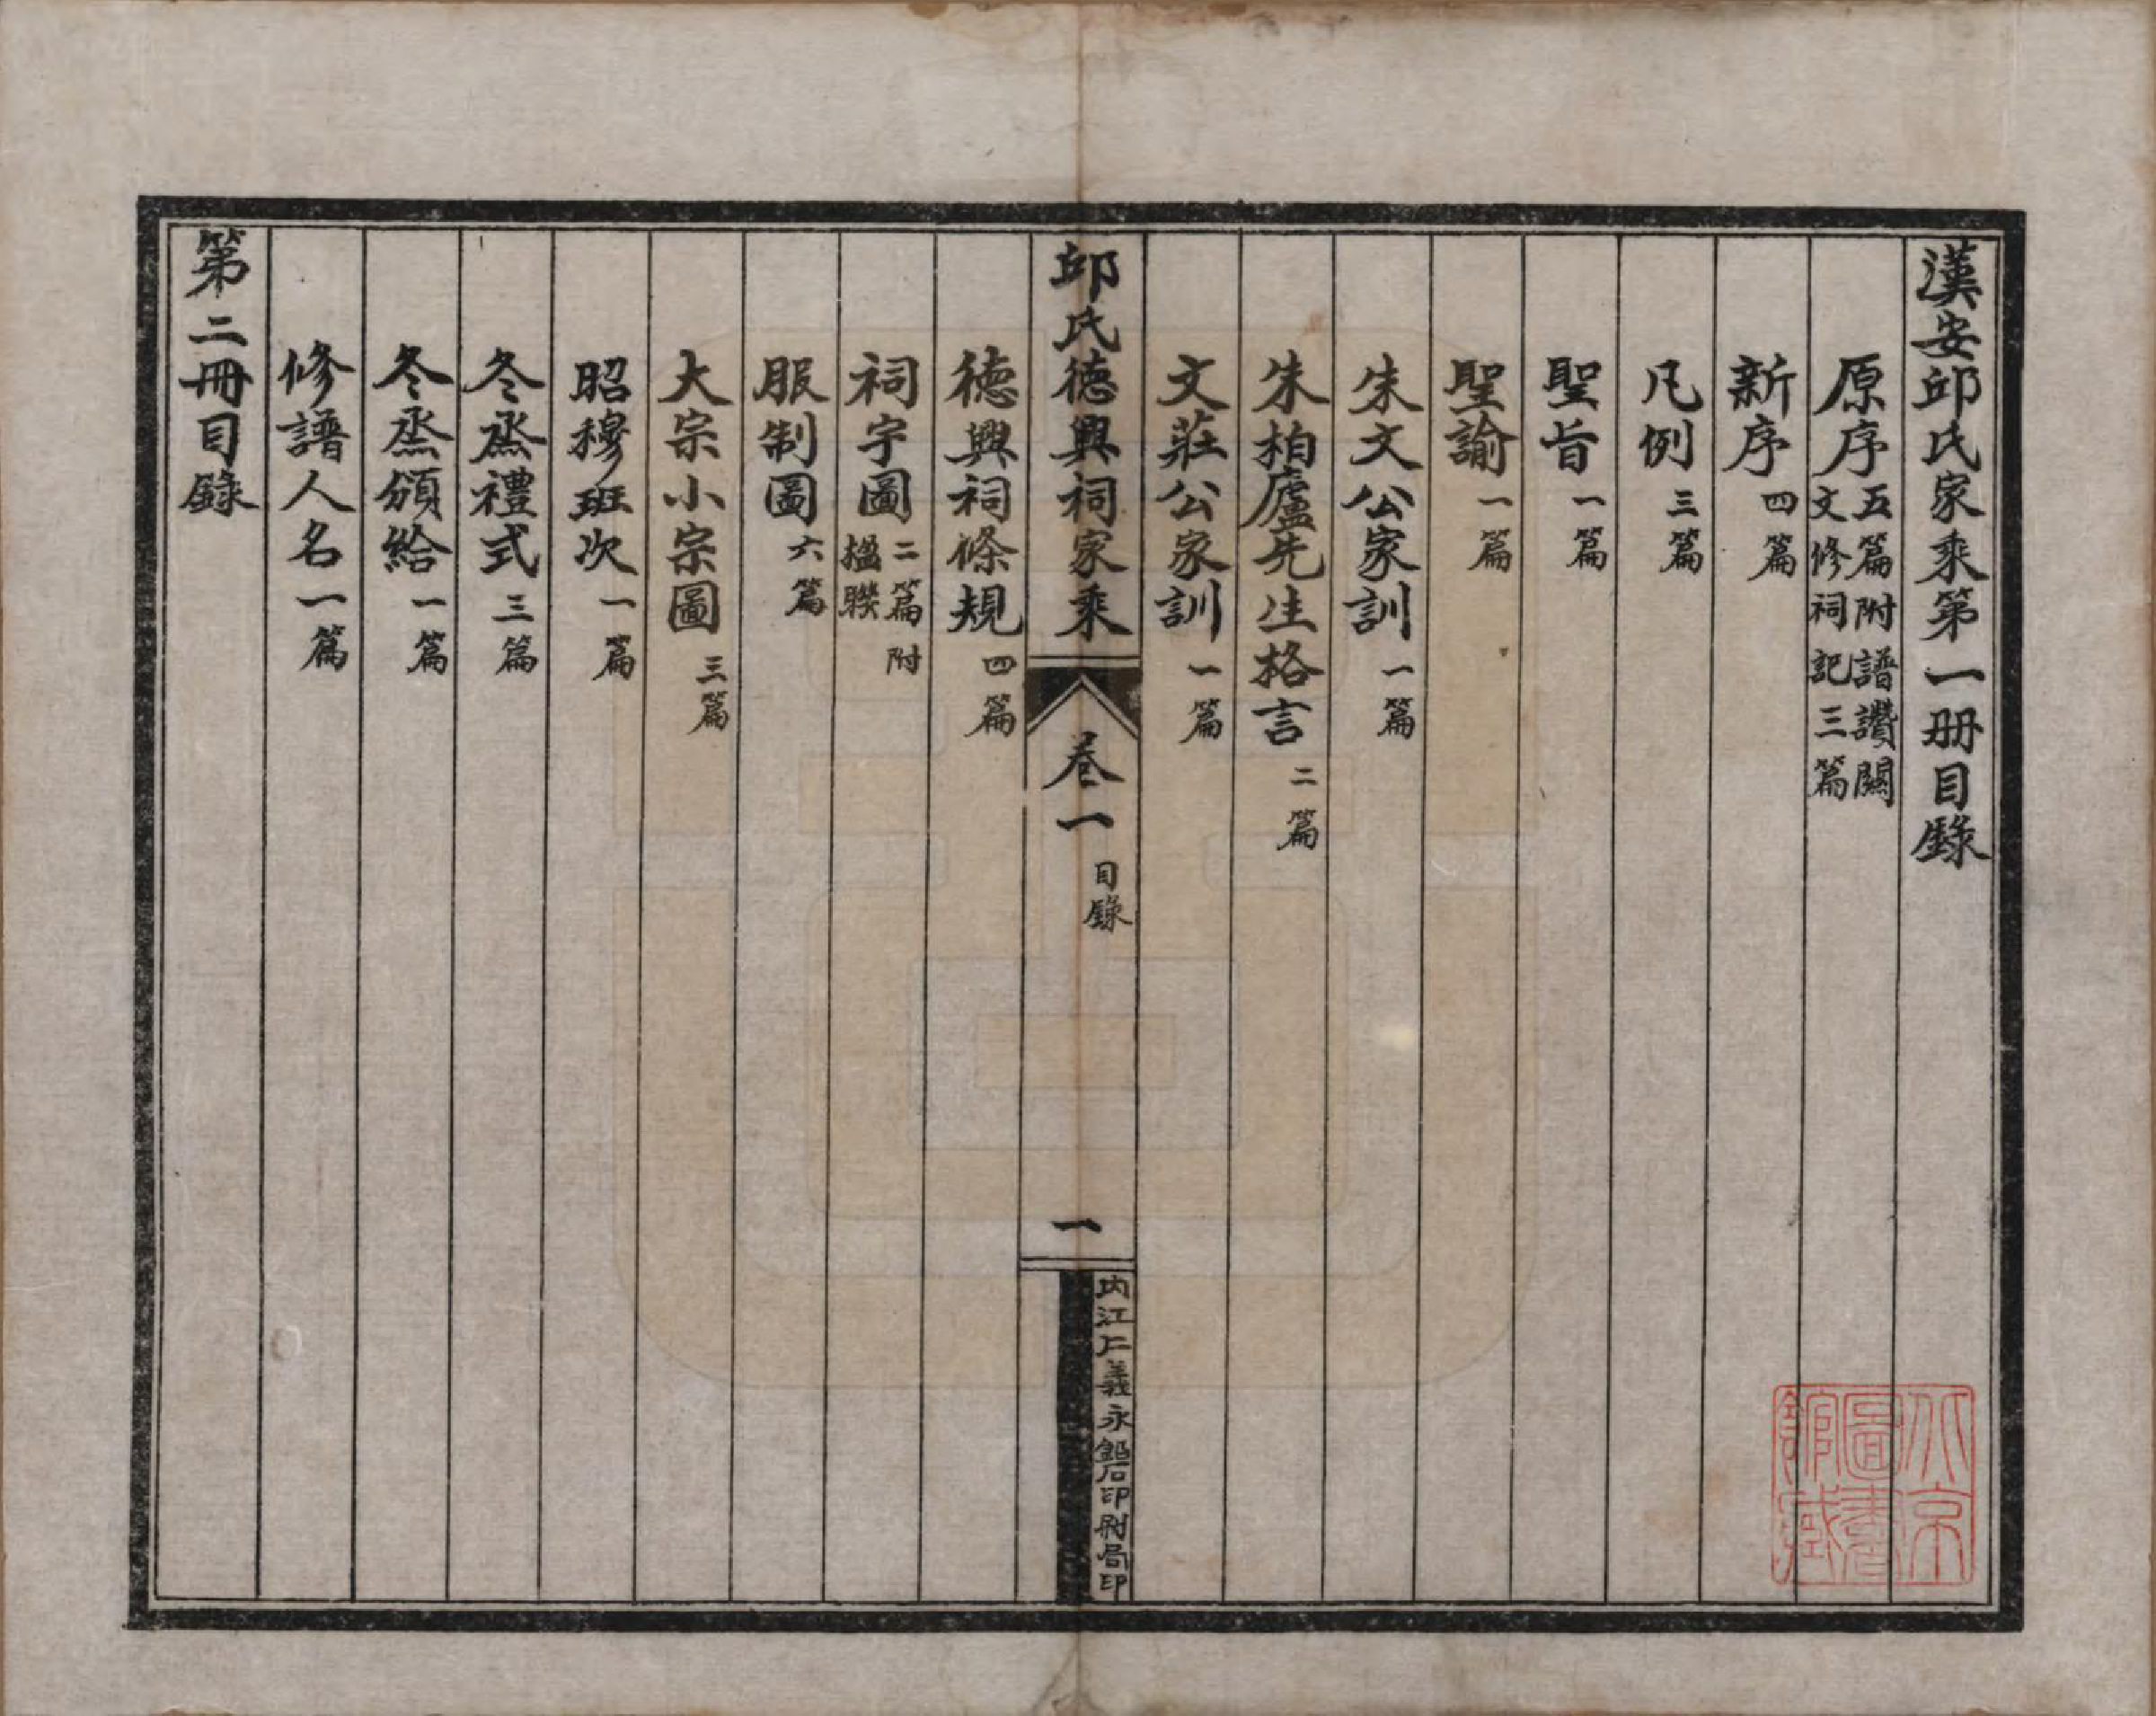 漢安邱氏家乘第一册目錄
原序五篇附譜讚闕文修祠記三篇
新序四篇
凡例三篇
聖旨一篇
聖諭一篇
朱文公家訓一篇
朱柏廬先生格言二篇
文莊公家訓一篇
邱氏德興祠家乘
卷一
目錄
一
内江仁義永鉛石印刷局印
德興祠條規四篇
祠宇圖二篇附楹聯
服制圖六篇
大宗小宗圖三篇
昭穆班次一篇
冬烝禮式三篇
冬烝頒給一篇
修譜人名一篇
第二冊目錄
北京圖書館藏